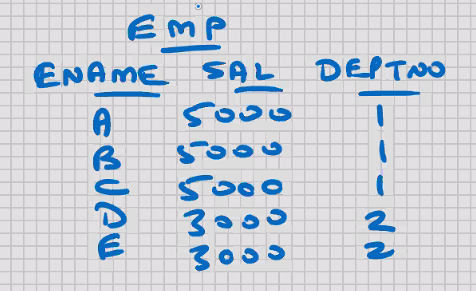 EMP
ENAME SAL DEPTNO
A 5000 1
B 5000 1
C 5000 1
D 3000 2
E 3000 2